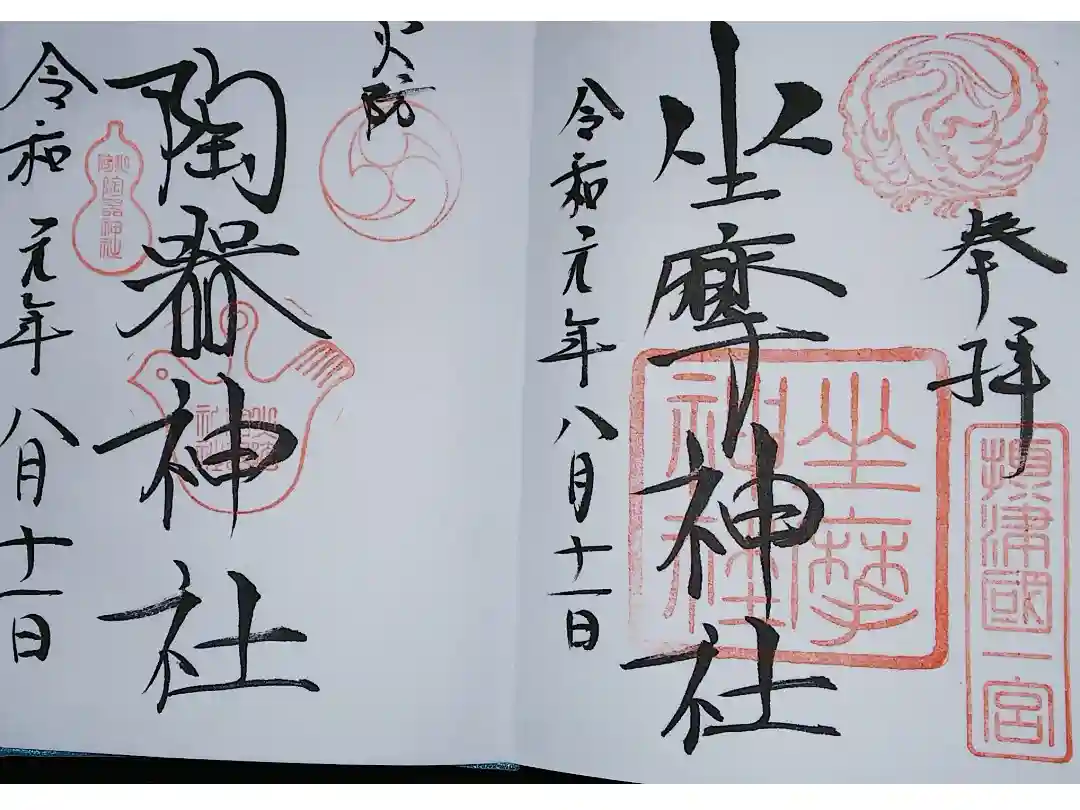 奉拝
摂津國一宮
坐摩神社
坐摩神社
令和元年八月十一日
火防
陶器神社
陶器神社
令和元年八月十一日